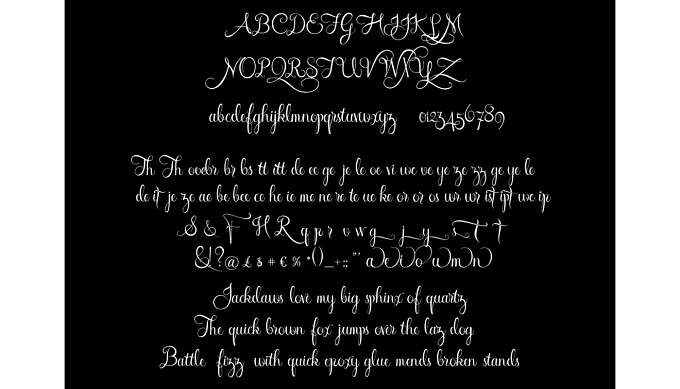 ABCDEFGHIJKLM
NOPQRSTUVWXYZ
abcdefghijklmnopqrstuvwxyz 0123456789
Th Th br bs tt de ce ge je le oe vi we ve ye ze zz ge ye le
de if je ze ae be bee ce he ie me ne re te ue ke or or os wr wr
S & F H R q p r v w g j y
&!?@ £ $ # € % *()_+:;"' a e i o u m n
Jackdaws love my big sphinx of quartz
The quick brown fox jumps over the laz dog
Battle fizz with quick epoxy glue mends broken stands